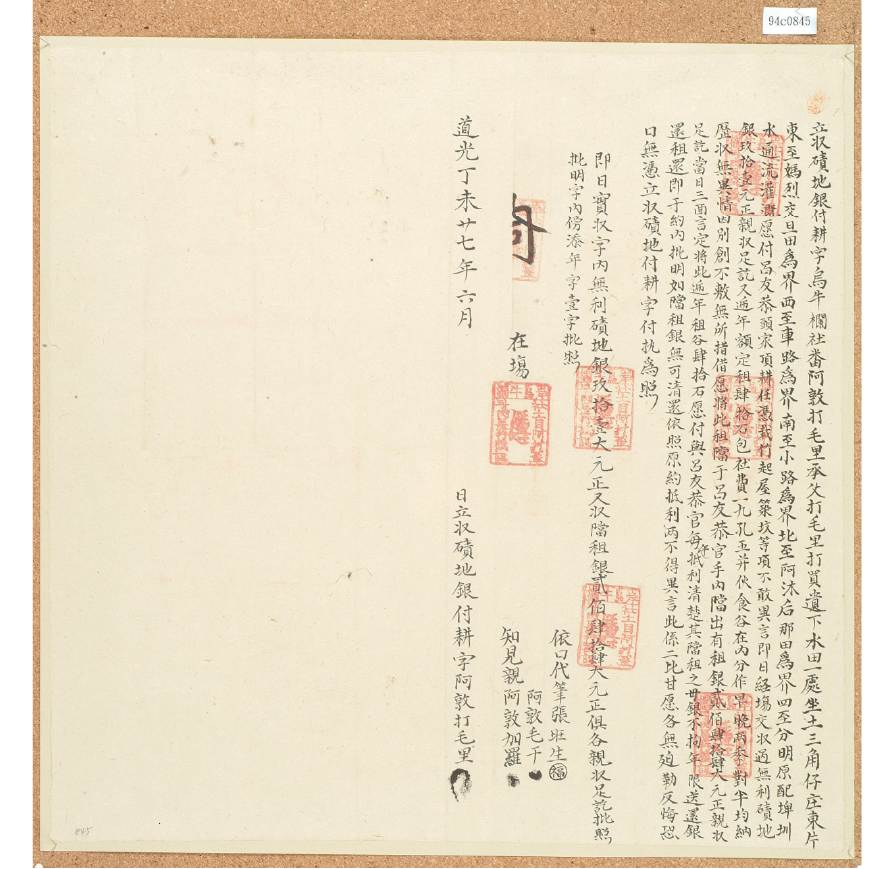 94c0845
立収磧地銀付耕字烏牛欄社番阿敦打毛里承父打毛里打買遺下水田一處坐土三角仔庄東片
東至媽烈交旦田為界西至車路為界南至小路為界北至阿沐后那田為界四至分明原配埤圳
水通流灌溉愿付呂友恭頭家項耕任憑栽竹起屋築坟等項不敢異言即日経塲交収過無利磧地
銀玖拾壹元正親収足訖又逓年額定租肆拾石包社費一九孔五并伙食谷在內分作早晚両季對半均納
歴収無異情因別創不敷無所措借愿將此租當于呂友恭官手內當出有租銀貳佰肆拾肆大元正親収
足訖當日三面言定將此逓年租谷肆拾石愿付與呂友恭官每年抵利清楚其當租之母銀不拘年限送還銀
還租還即于約內批明如當租銀無可清還依照原約抵利両不得異言此係二比甘愿各無廹勒反悔恐
口無憑立収磧地付耕字付执為照
即日實収字內無利磧地銀玖拾壹大元正又収當租銀貳佰肆拾肆大元正俱各親収足訖批照
批明字內傍添年字壹字批照
在塲
依口代筆張旺生
福
阿敦毛干
知見親阿敦加羅
道光丁未廿七年六月 日立収磧地銀付耕字阿敦打毛里
845